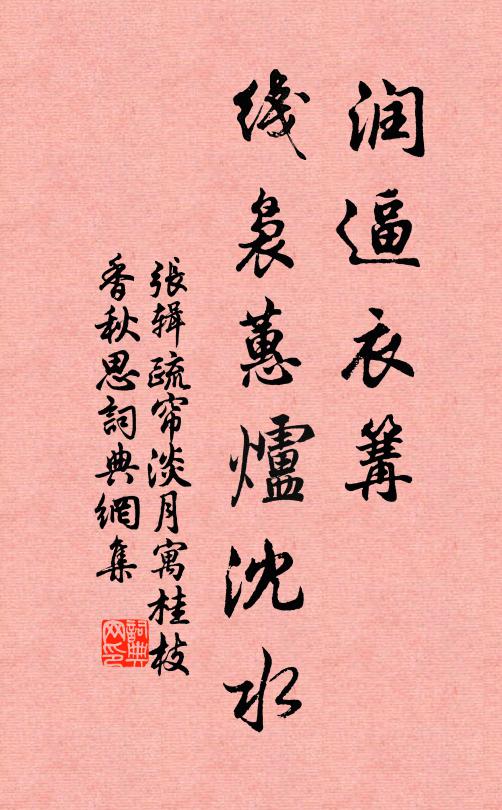 润逼衣篝
线袅蕙爐沈水
張辑疏帘淡月寓桂枝
香秋思詞典網集
詞典网印